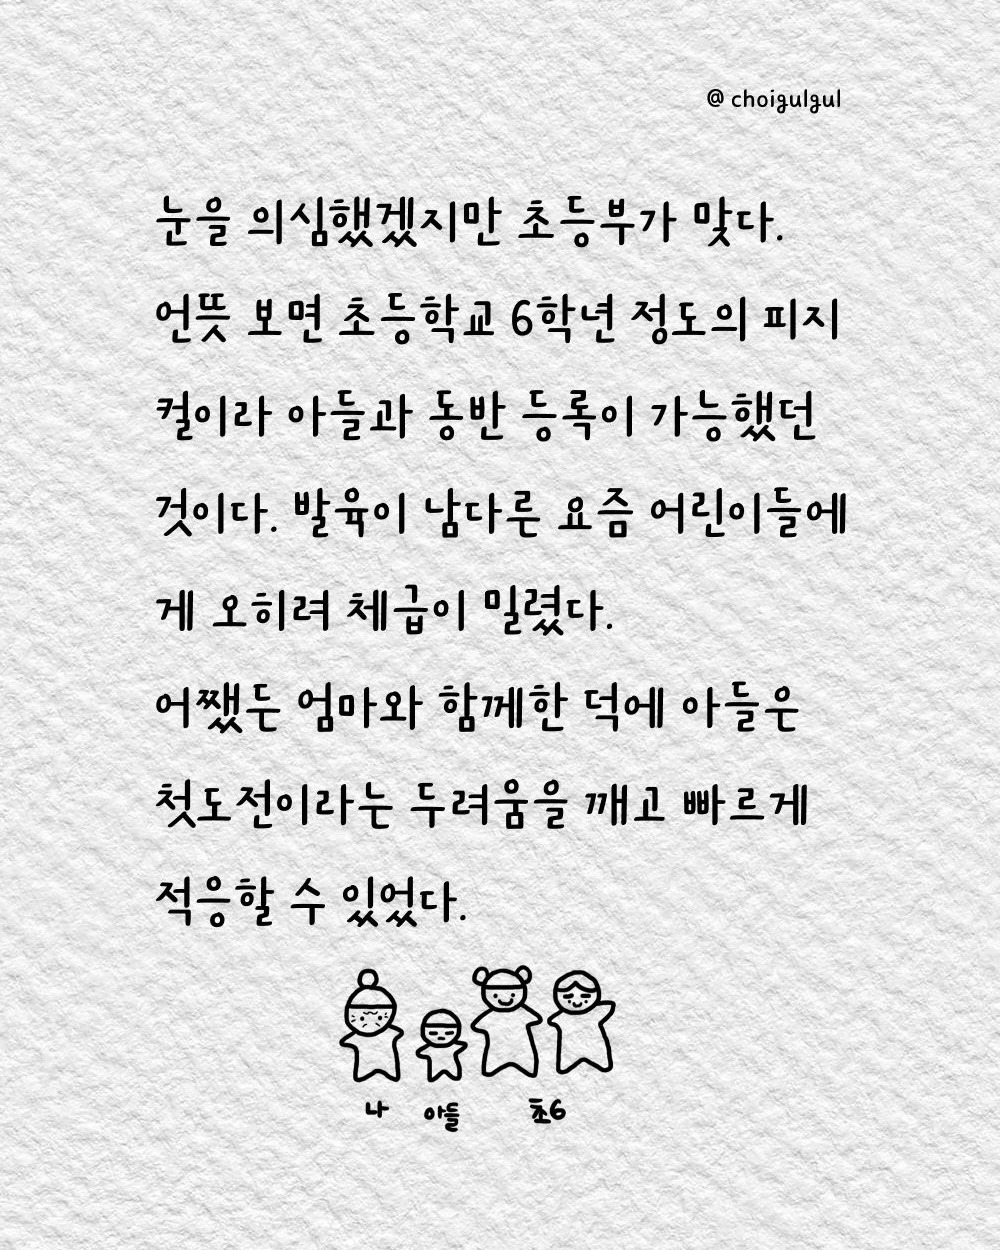 @ choigulgul
눈을 의심했겠지만 초등부가 맞다.
언뜻 보면 초등학교 6학년 정도의 피지
컬이라 아들과 동반 등록이 가능했던
것이다. 발육이 남다른 요즘 어린이들에
게 오히려 체급이 밀렸다.
어쨌든 엄마와 함께한 덕에 아들은
첫도전이라는 두려움을 깨고 빠르게
적응할 수 있었다.
나 아들 초6